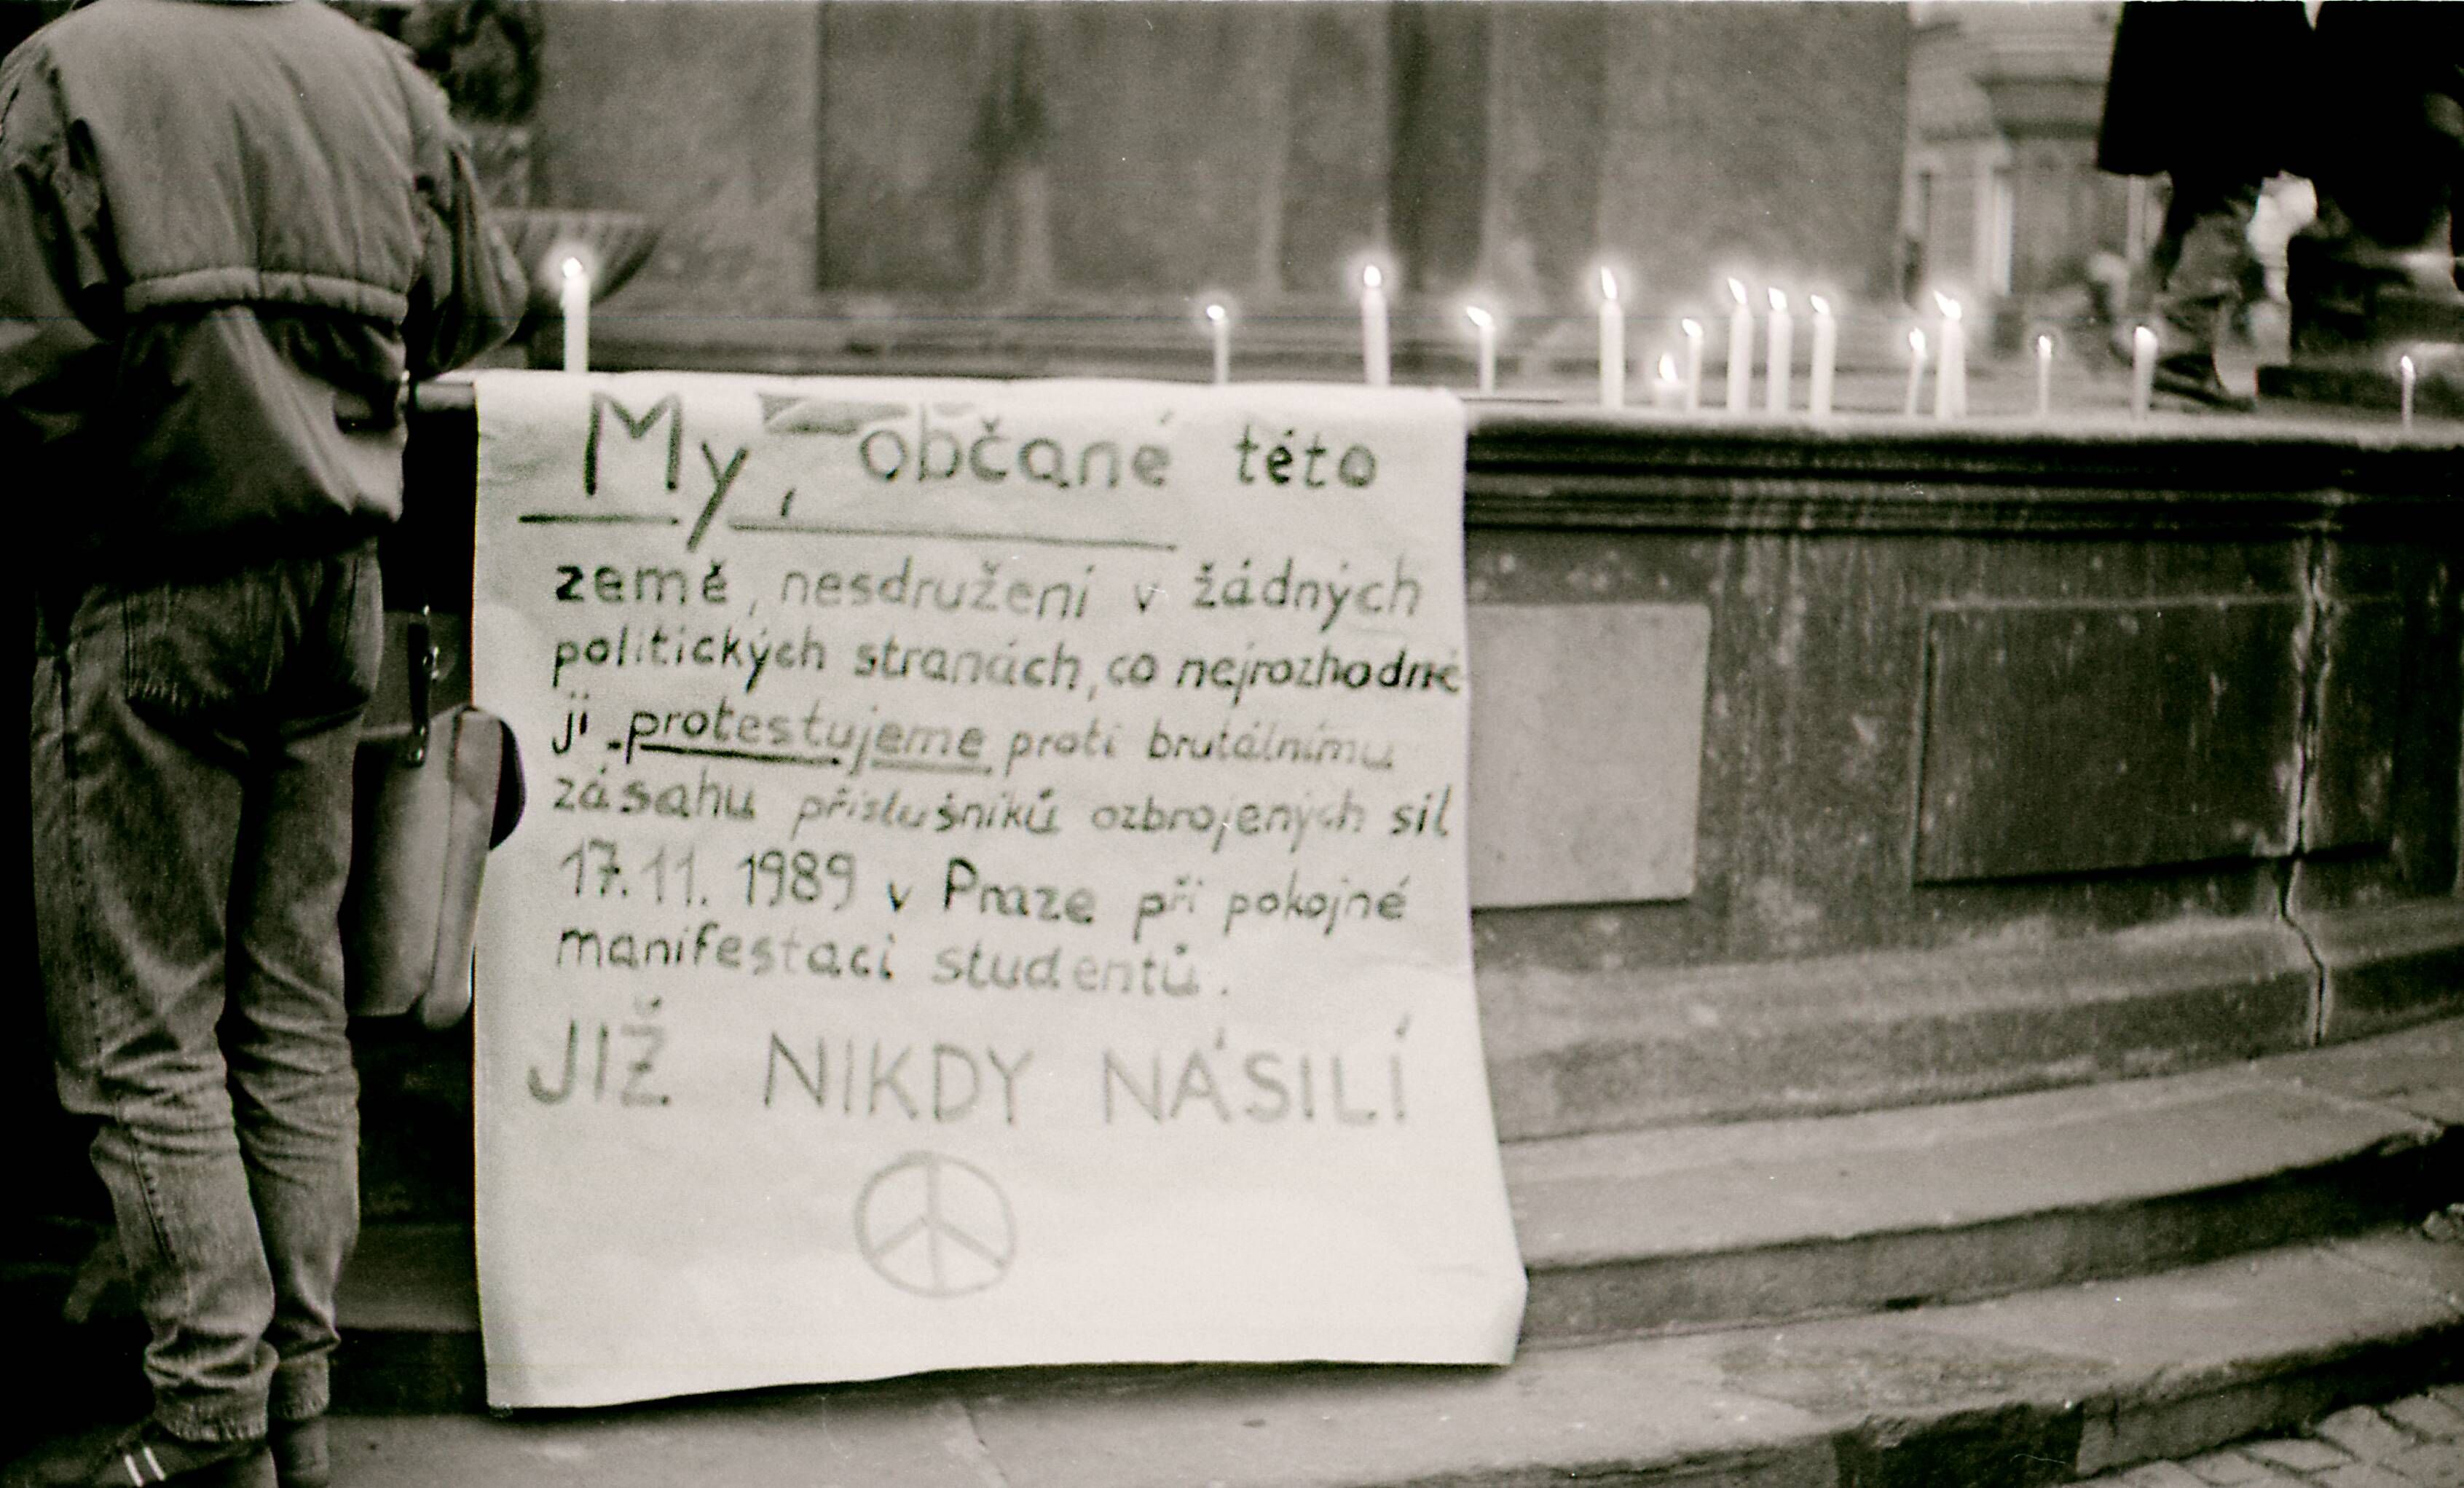 My, občané této
země, nesdruženi v žádných
politických stranách, co nejrozhodně
ji protestujeme proti brutálnímu
zásahu příslušníků ozbrojených sil
17.11. 1989 v Praze při pokojné
manifestaci studentů.
JIŽ NIKDY NÁSILÍ